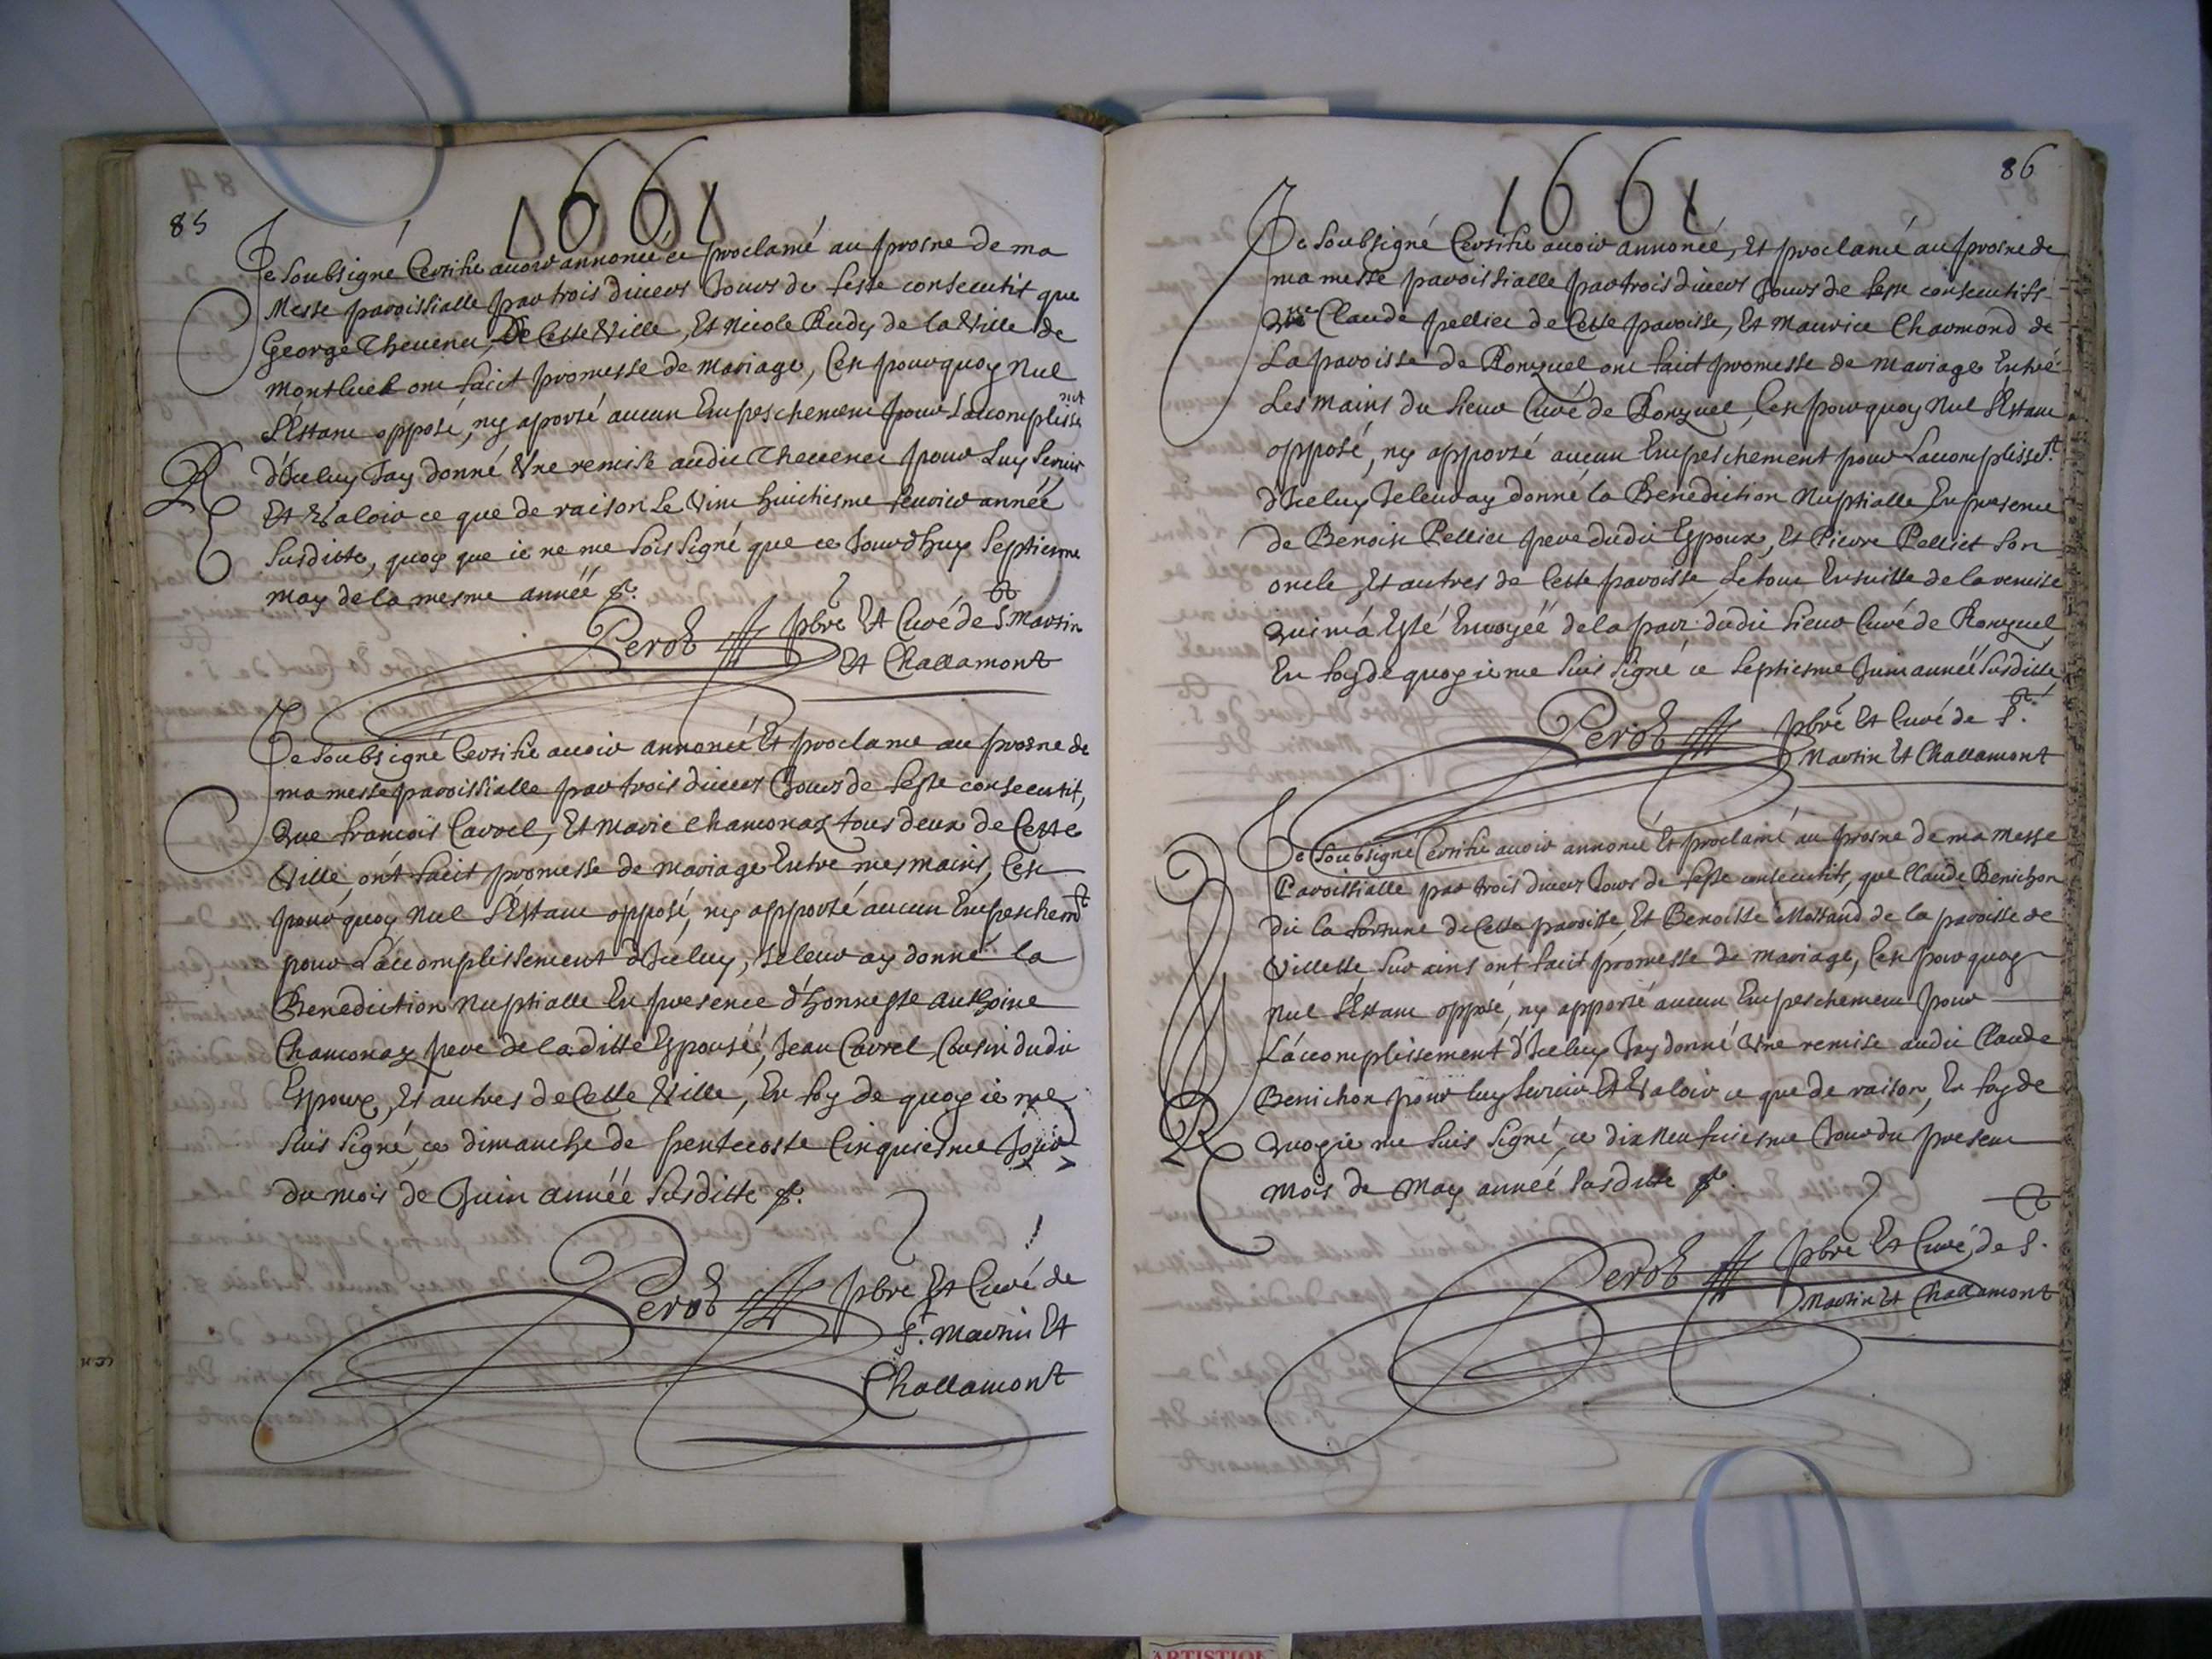 85
1661
Je soubsigné Certifie avoir annoncé et proclamé au prosne de ma
Messe paroissialle par trois divers Jours de feste consecutif que
George Thevenet, De Cette Ville, Et Nicole Rudy de la Ville de
Montluel ont faict promesse de Mariage, Cest pourquoy Nul
s'Estant opposé, ny aporté aucun Empeschement pour L'accomplissemt
d'Iceluy J'ay donné Une remise audit Thevenet pour Luy servir
Et Valoir ce que de raison Le Vint huictiesme fevrier année
susditte, quoy que ie ne me sois signé que ce Jourdhuy septiesme
may de la mesme année &.
Perot pbre Et Curé de St Martin
Et Challamont
Je soubsigné Certifie avoir annoncé Et proclamé au prosne de
ma messe paroissialle par trois divers Jours de feste consecutif,
Que francois Carrel, Et Marie Chamonaz tous deux de Cette
Ville ont faict promesse de Mariage Entre mes mains, Cest
pourquoy Nul s'Estant opposé, ny apporté aucun Empeschemt
pour L'acomplissement d'Iceluy, Je leur ay donné la
Benediction Nuptialle En presence d'honneste Anthoine
Chamonaz pere de la ditte Espousée, Jean Carrel Cousin dudit
Espoux, Et autres de Cette Ville, En foy de quoy ie me
suis signé, ce dimanche de pentecoste Cinquiesme Jour
du mois de Juin année susditte &.
Perot pbre Et Curé de
St. Martin Et
Challamont
86
1661
Je soubsigné Certifie avoir annoncé, Et proclamé au prosne de
ma messe paroissialle par trois divers Jours de feste consecutifs
Que Claude pellier de Cette paroisse, Et Maurice Charmond de
La paroisse de Ronzuel ont faict promesse de Mariage Entre
Les Mains du sieur Curé de Ronzuel, Cest pourquoy Nul s'Estant
opposé, ny apporté aucun Empeschement pour L'accomplissemt
d'Iceluy Je leur ay donné la Benediction Nuptialle En presence
de Benoist Pellier pere dudit Espoux, Et Pierre Pelliet son
oncle Et autres de Cette paroisse, Le tout Ensuitte de la remise
Qui m'a Esté Envoyée de la part dudit sieur Curé de Ronzuel
En foy de quoy ie me suis signé ce septiesme Juin année susditte
&.
Perot pbre Et Curé de St.
Martin Et Challamont
Je soubsigné Certifie avoir annoncé Et proclamé au prosne de ma Messe
Paroissialle par trois divers Jours de feste consecutifs, que Claude Benichon
dit la fortune de Cette paroisse, Et Benoiste Mottand de la paroisse de
Villette sur ains ont faict promesse de Mariage, Cest pourquoy
Nul s'Estant opposé, ny apporté aucun Empeschement pour
L'accomplissement d'Iceluy J'ay donné Une remise audit Claude
Benichon pour luy servir Et Valoir ce que de raison, En foy de
Quoy ie me suis signé, ce dix neufuiesme Jour du present
Mois de May année susditte &.
Perot pbre Et Curé de St.
Martin Et Challamont